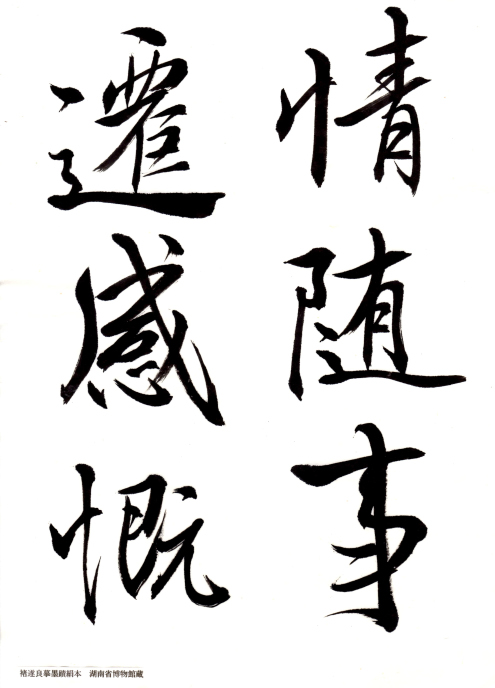 情随事
遷感慨
褚遂良摹墨蹟絹本　湖南省博物館藏